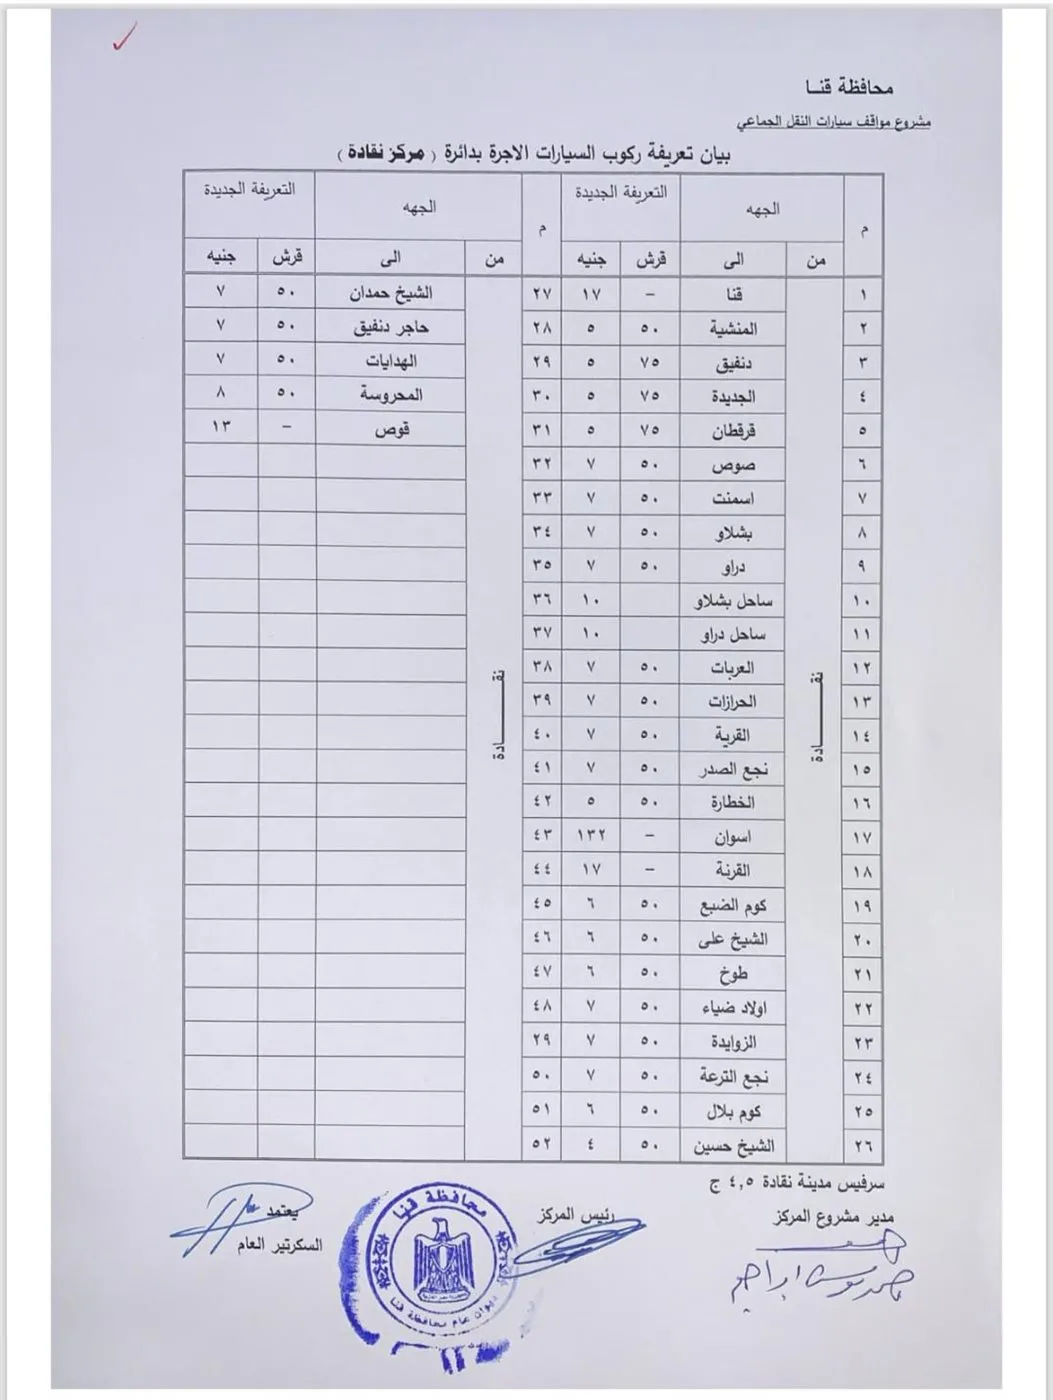 محافظة قنـا
مشروع مواقف سيارات النقل الجماعي
بيان تعريفة ركوب السيارات الاجرة بدائرة ( مركز نقادة )
م الجهه التعريفة الجديدة م الجهه التعريفة الجديدة
من الى قرش جنيه من الى قرش جنيه
١ قنا – ١٧ ٢٧ الشيخ حمدان ٥٠ ٧
٢ المنشية ٥٠ ٥ ٢٨ حاجر دنفيق ٥٠ ٧
٣ دنفيق ٧٥ ٥ ٢٩ الهدايات ٥٠ ٧
٤ الجديدة ٧٥ ٥ ٣٠ المحروسة ٥٠ ٨
٥ قرقطان ٧٥ ٥ ٣١ قوص – ١٣
٦ صوص ٥٠ ٧ ٣٢
٧ اسمنت ٥٠ ٧ ٣٣
٨ بشلاو ٥٠ ٧ ٣٤
٩ دراو ٥٠ ٧ ٣٥
١٠ ساحل بشلاو ١٠ ٣٦
١١ ساحل دراو ١٠ ٣٧
١٢ العربات ٥٠ ٧ ٣٨
نقـــــادة نقـــــادة
١٣ الحرازات ٥٠ ٧ ٣٩
١٤ القرية ٥٠ ٧ ٤٠
١٥ نجع الصدر ٥٠ ٧ ٤١
١٦ الخطارة ٥٠ ٥ ٤٢
١٧ اسوان – ١٣٢ ٤٣
١٨ القرنة – ١٧ ٤٤
١٩ كوم الضبع ٥٠ ٦ ٤٥
٢٠ الشيخ على ٥٠ ٦ ٤٦
٢١ طوخ ٥٠ ٦ ٤٧
٢٢ اولاد ضياء ٥٠ ٧ ٤٨
٢٣ الزوايدة ٥٠ ٧ ٢٩
٢٤ نجع الترعة ٥٠ ٧ ٥٠
٢٥ كوم بلال ٥٠ ٦ ٥١
٢٦ الشيخ حسين ٥٠ ٤ ٥٢
سرفيس مدينة نقادة ٤,٥ ج
مدير مشروع المركز رئيس المركز يعتمد
السكرتير العام
محافظة قنا
ديوان عام محافظة قنا